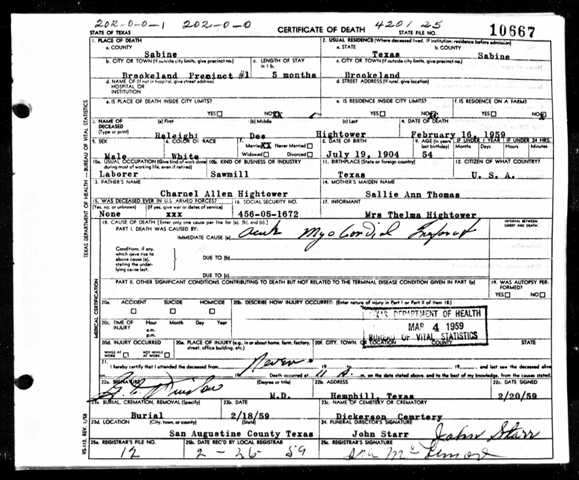 202-0-0-1 202-0-0 4201 25
STATE OF TEXAS CERTIFICATE OF DEATH STATE FILE NO. 10667
1. PLACE OF DEATH 2. USUAL RESIDENCE (Where deceased lived. If institution: residence before admission)
a. COUNTY a. STATE b. COUNTY
Sabine Texas Sabine
b. CITY OR TOWN (If outside city limits, give precinct no.) c. LENGTH OF STAY in 1 b. c. CITY OR TOWN (If outside city limits, give precinct no.)
Brookeland Precinct #1 5 months Brookeland
d. NAME OF (If not in hospital, give street address) HOSPITAL OR INSTITUTION d. STREET ADDRESS (If rural, give location)
e. IS PLACE OF DEATH INSIDE CITY LIMITS? e. IS RESIDENCE INSIDE CITY LIMITS? f. IS RESIDENCE ON A FARM?
YES NO YES NO YES NO
3. NAME OF DECEASED (Type or print) (a) First (b) Middle (c) Last 4. DATE OF DEATH
Raleigh Dee Hightower February 16, 1959
5. SEX 6. COLOR OR RACE 7. Married Never Married Widowed Divorced 8. DATE OF BIRTH 9. AGE (In years last birthday) IF UNDER 1 YEAR Months Days IF UNDER 24 HRS. Hours Minutes
Male White July 19, 1904 54
10a. USUAL OCCUPATION (Give kind of work done during most of working life, even if retired) 10b. KIND OF BUSINESS OR INDUSTRY 11. BIRTHPLACE (State or foreign country) 12. CITIZEN OF WHAT COUNTRY?
Laborer Sawmill Texas U. S. A.
13. FATHER'S NAME 14. MOTHER'S MAIDEN NAME
Charnel Allen Hightower Sallie Ann Thomas
15. WAS DECEASED EVER IN U.S. ARMED FORCES? 16. SOCIAL SECURITY NO. 17. INFORMANT
(Yes, no or unknown) (If yes, give war or dates of service)
None xxx 456-05-1672 Mrs Thelma Hightower
18. CAUSE OF DEATH (Enter only one cause per line for (a), (b), and (c).) INTERVAL BETWEEN ONSET AND DEATH
PART I. DEATH WAS CAUSED BY:
IMMEDIATE CAUSE (a) Myocardial
Conditions, if any, which gave rise to above cause (a), stating the underlying cause last. DUE TO (b)
DUE TO (c)
PART II. OTHER SIGNIFICANT CONDITIONS CONTRIBUTING TO DEATH BUT NOT RELATED TO THE TERMINAL DISEASE CONDITION GIVEN IN PART I (a) 19. WAS AUTOPSY PERFORMED?
YES NO
20a. ACCIDENT SUICIDE HOMICIDE 20b. DESCRIBE HOW INJURY OCCURRED. (Enter nature of injury in Part I or Part II of item 18.)
20c. TIME OF INJURY Hour Month Day Year
a.m.
p.m.
TEXAS DEPARTMENT OF HEALTH
MAR 4 1959
BUREAU OF VITAL STATISTICS
20d. INJURY OCCURRED 20e. PLACE OF INJURY (e.g. in or about home, farm, factory, street, office building, etc.) 20f. CITY, TOWN, OR LOCATION COUNTY STATE
WHILE AT WORK NOT WHILE AT WORK
21. I hereby certify that I attended the deceased from Never, 19, to, 19, and last saw the deceased alive
on, 19. Death occurred at m. on the date stated above; and to the best of my knowledge, from the causes stated.
22a. SIGNATURE (Degree or title) 22b. ADDRESS 22c. DATE SIGNED
M.D. Hemphill, Texas 2/20/59
23a. BURIAL, CREMATION, REMOVAL (Specify) 23b. DATE 23c. NAME OF CEMETERY OR CREMATORY
Burial 2/18/59 Dickerson Cemetery
23d. LOCATION (City, town, or county) (State) 24. FUNERAL DIRECTOR'S SIGNATURE
San Augustine County Texas John Starr John Starr
25a. REGISTRAR'S FILE NO. 25b. DATE REC'D BY LOCAL REGISTRAR 25c. REGISTRAR'S SIGNATURE
12 2-26-59
TEXAS DEPARTMENT OF HEALTH—BUREAU OF VITAL STATISTICS
MEDICAL CERTIFICATION
VS-112, REV. 1/58